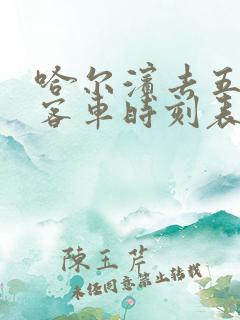 哈尔滨去五
客车时刻表
陈玉芹
未经同意禁止转载